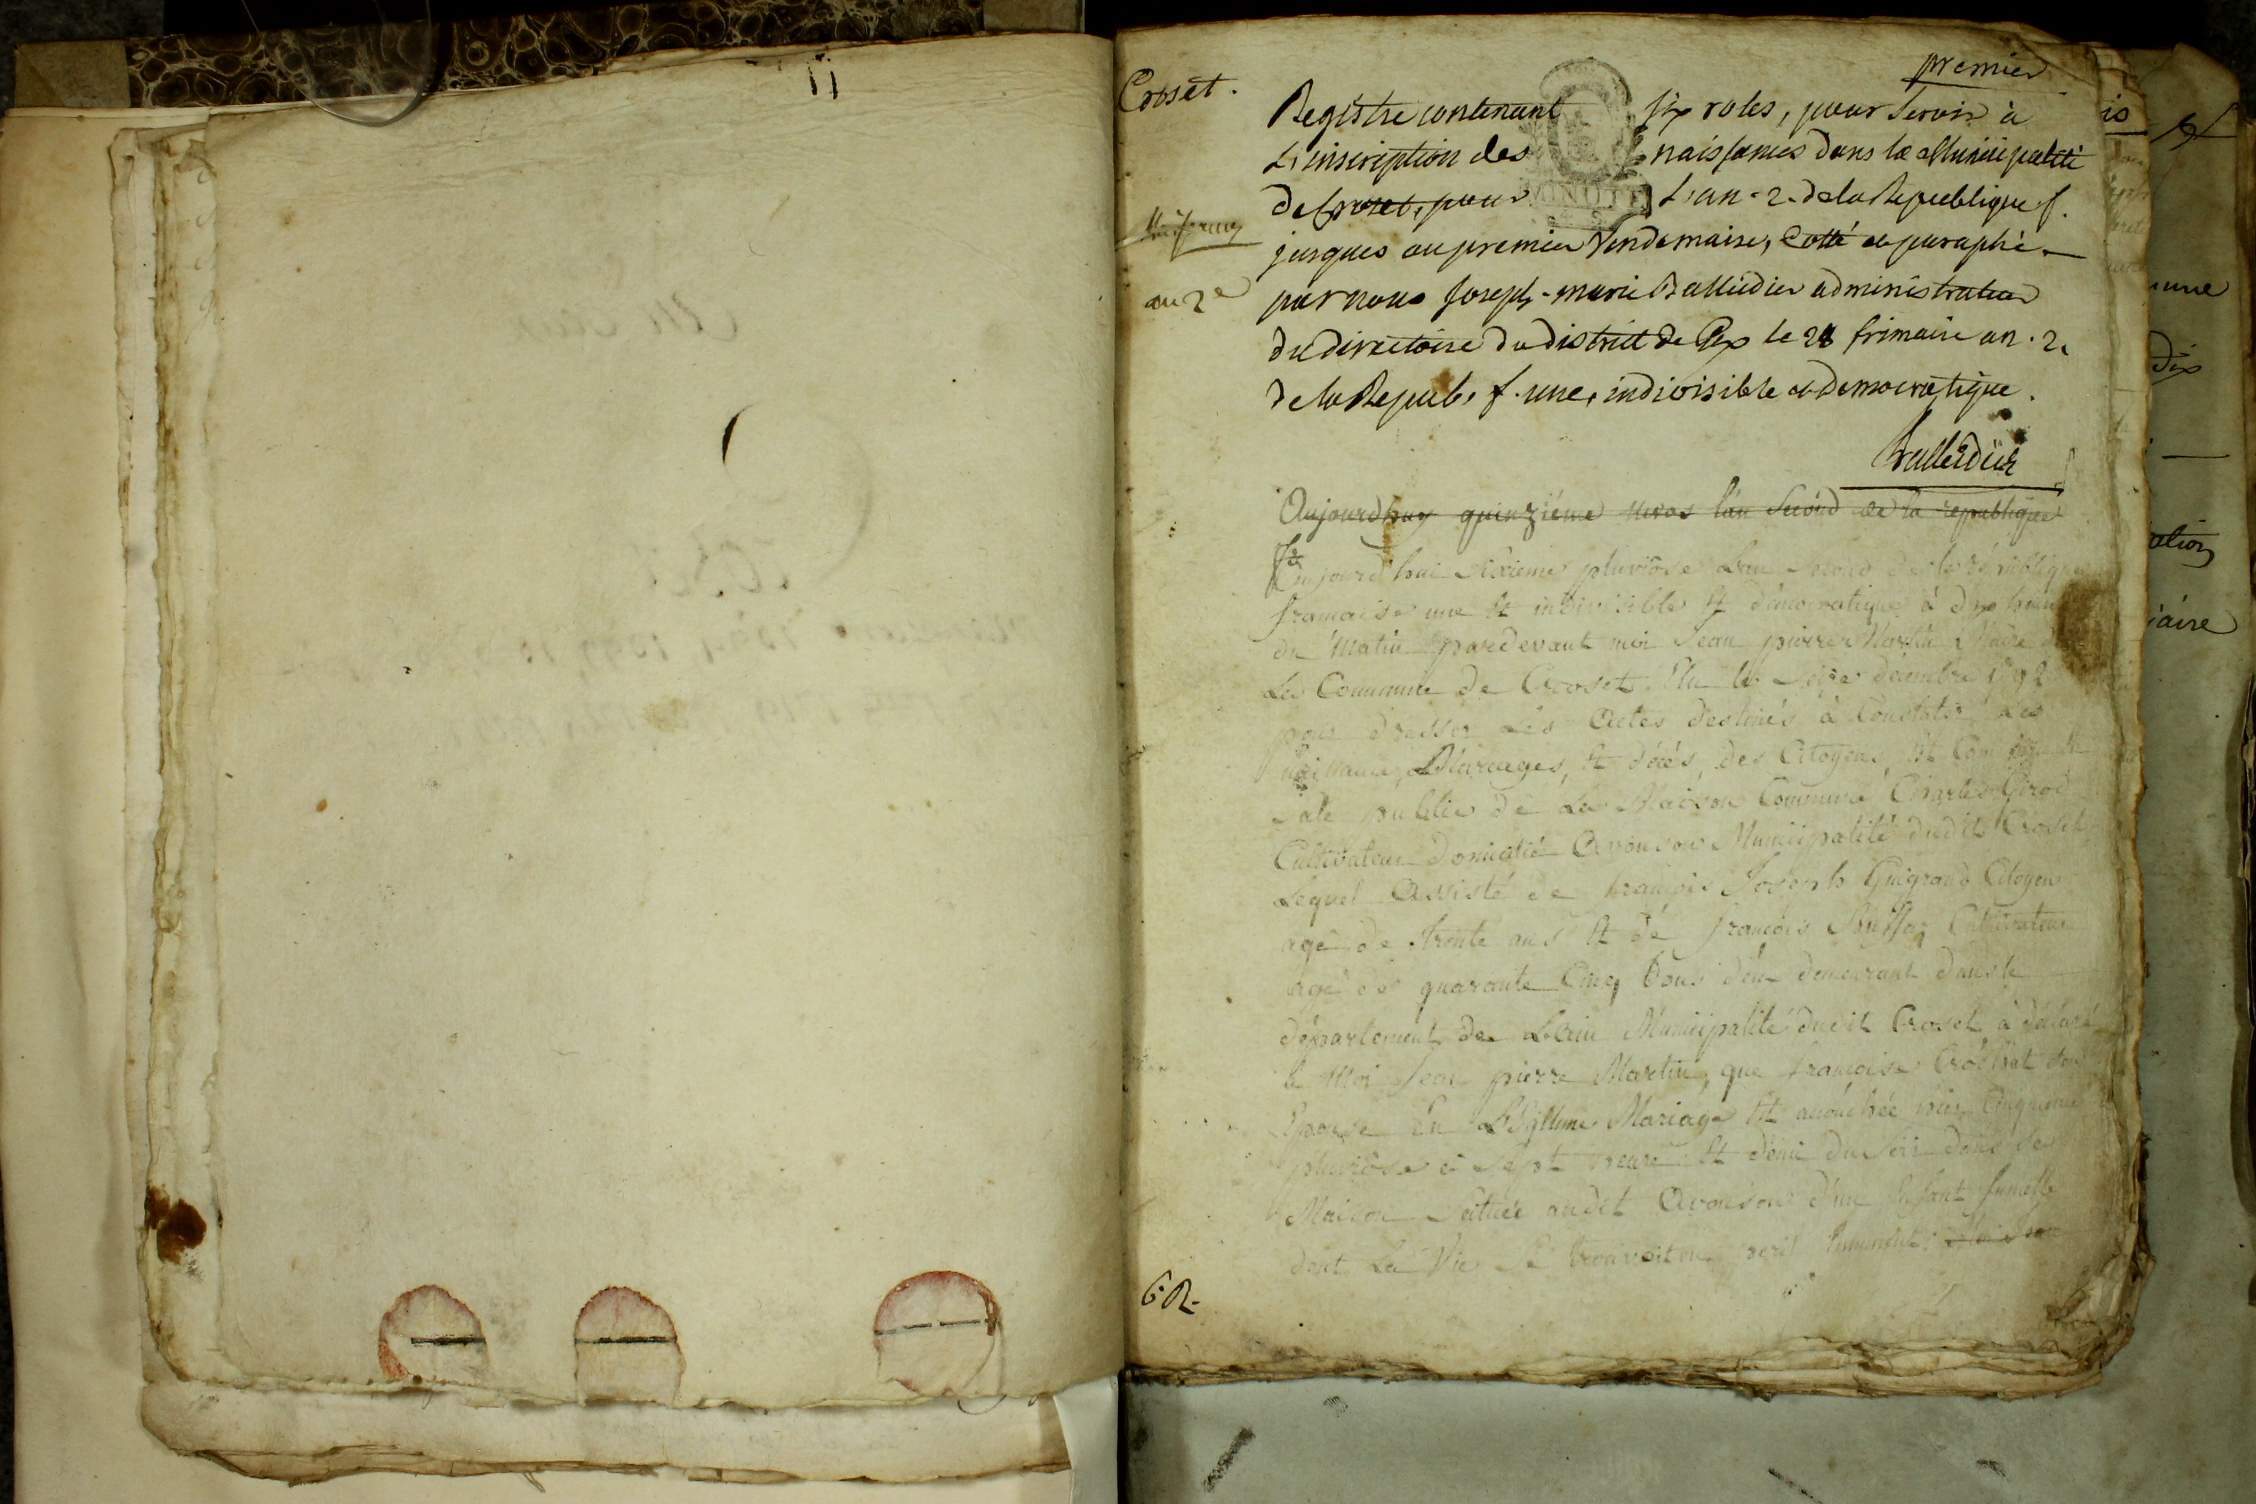 premier
Croset.
Registre contenant six roles, pour servir à
L'inscription des naissances dans la Municipalité
de Croset, pour L'an 2. de la Republique f.
jusques au premier Vendemaire, Cotté et paraphé
par nous Joseph-marie Balleidier administrateur
du directoire du district de Gex le 28 frimaire an 2.
de la Repub. f. une, indivisible et Democratique.
Naissances
an 2e
Balleidier
Aujourdhuy quinziéme nivos lan Second de la republique
fse
Aujourd'hui sixieme pluviôse L'an second de la republique
francaise une et indivisible et démocratique à dix heures
du Matin pardevant moi Jean pierre Martin Maire de
La Commune de Croset Elu le seize décembre 1792
pour dresser Les Actes destinés à Constater Les
naissances, Mariages, et décés, des Citoyens, Est Comparu En
sale publie de La Maison Commune Charles Girod
Cultivateur domicilié Avouson Municipalité dudit Croset
Lequel Assisté de françois Joseph Guigrand Citoyen
agé de trente ans et de françois Cultivateur
agé de quarante Cinq tous deux demeurant dans le
département de L'ain Municipalité dudit Croset à déclaré
à Moi Jean pierre Martin, que françoise Crochat son
Epouse En Légitime Mariage Et accouchée hier Cinquieme
pluviôse à sept heure et demie du soir dans sa
Maison située audit Avouson d'une Enfant fumelle
dont La Vie se trouvoit en peril
6. R.